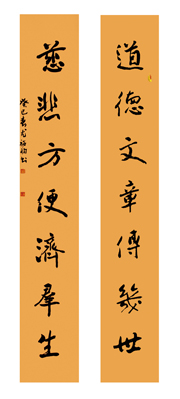 道德文章傳幾世
慈悲方便濟羣生
癸巳春